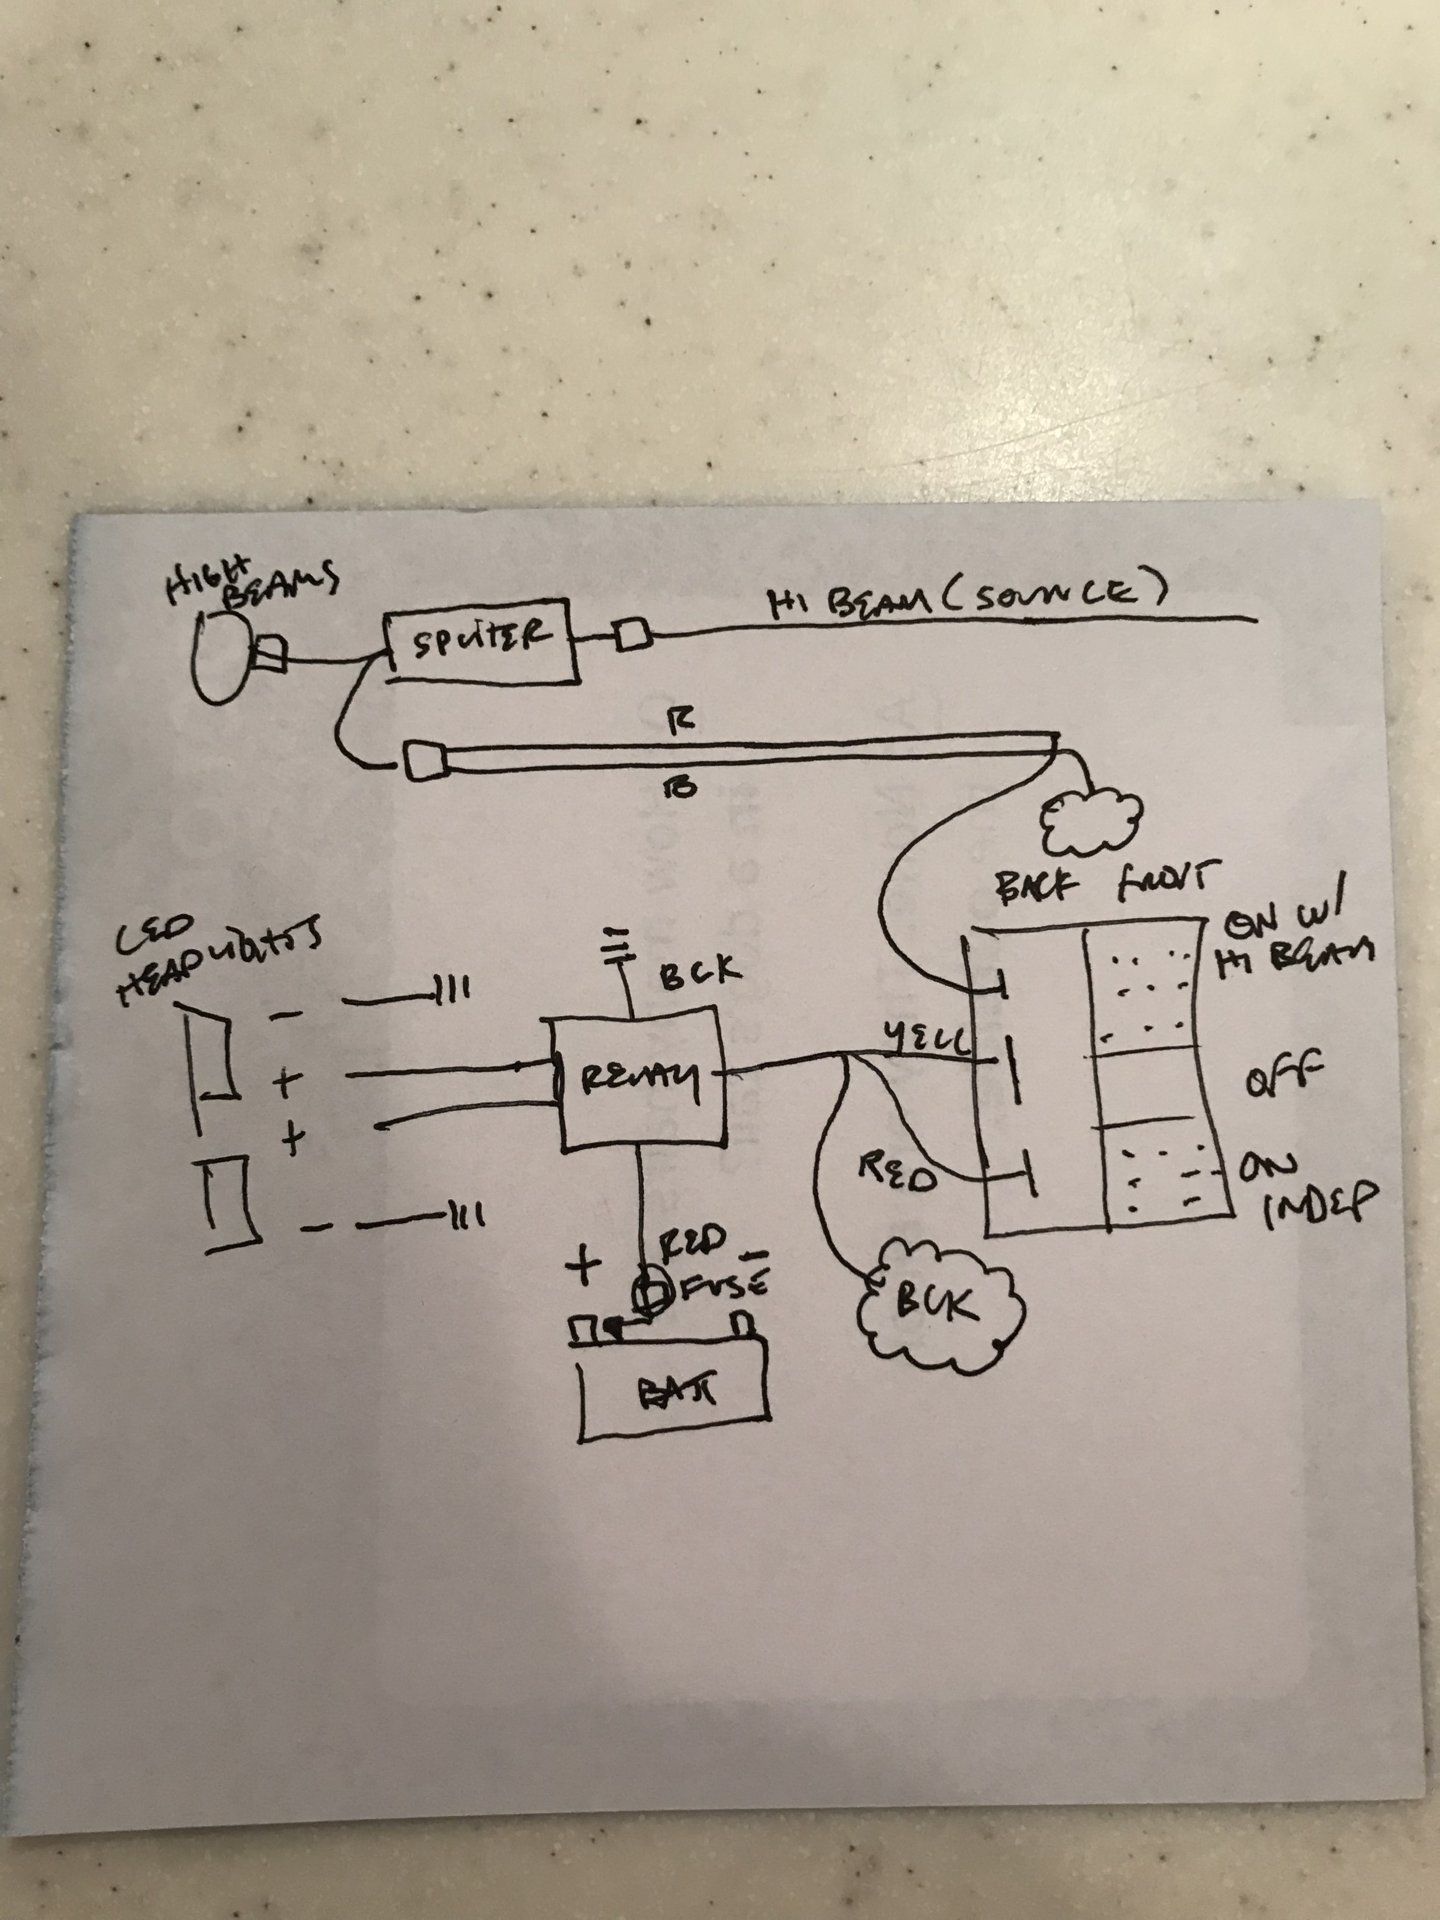 HIGH
BEAMS
SPLITER
HI BEAM (SOURCE)
R
B
BACK FRONT
ON W/
HI BEAM
LED
HEADLIGHTS
BCK
-
+
+
-
RELAY
YELL
OFF
RED
ON
INDEP
+
RED
FUSE
-
BCK
BATT